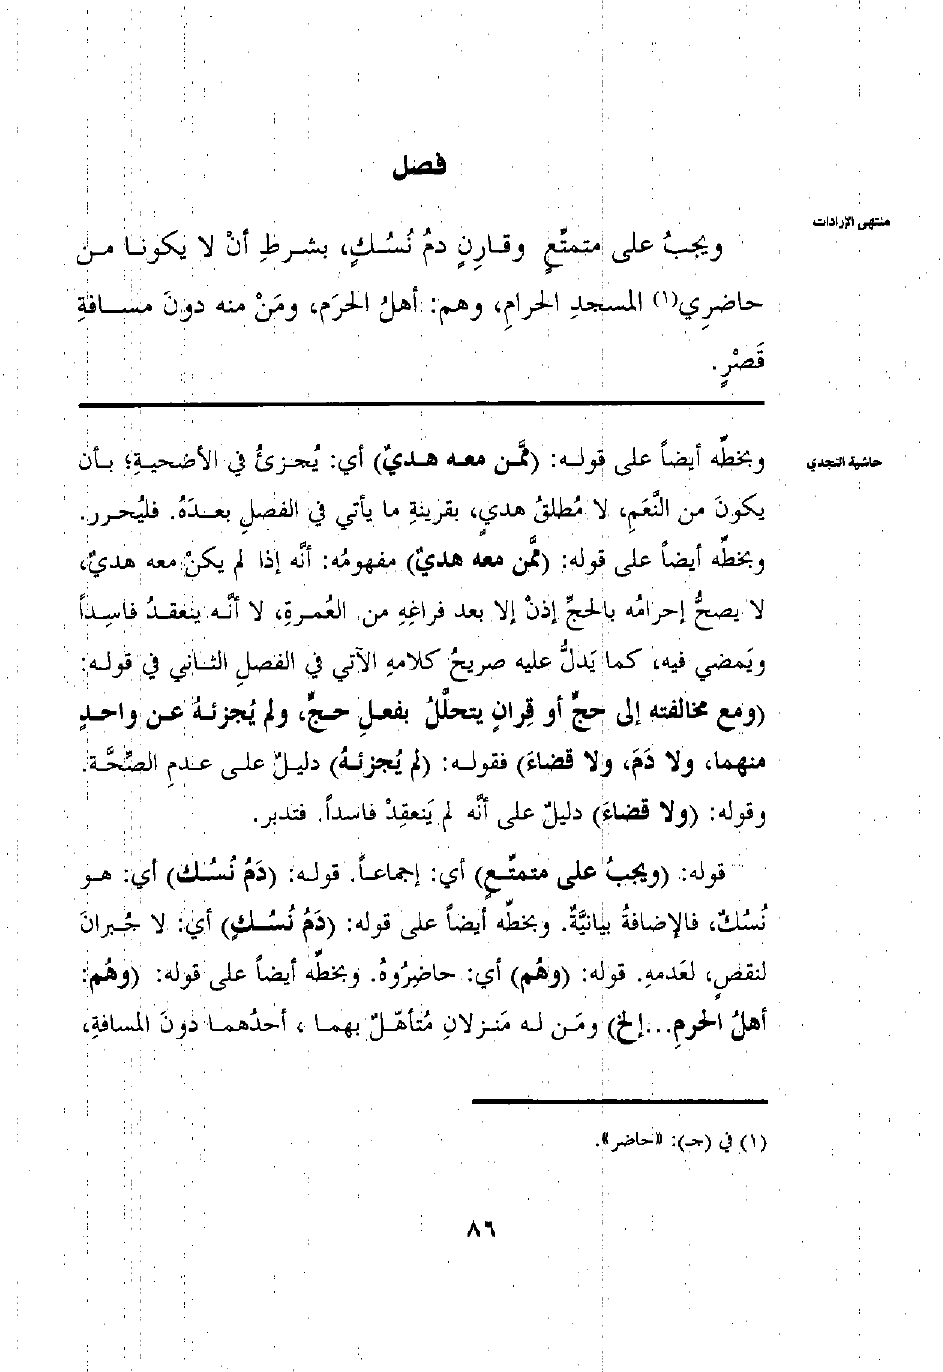 فصل
منتهى الإرادات
ويجبُ على متمتِّعٍ وقـارِنٍ دمُ نُسُـكٍ، بشـرطِ أنْ لا يكونـا مـن
حاضرِي(١) المسجدِ الحرامِ، وهم: أهلُ الحرَم، ومَنْ منه دونَ مسـافةِ
قَصْرٍ.
حاشية النجدي
وبخطِّه أيضاً على قولـه: (ممَّـن معـه هـديٌ) أي: يُجـزئُ في الأضحيـةِ؛ بـأن
يكونَ من النَّعَمِ، لا مُطلقُ هديٍ، بقرينةِ ما يأتي في الفصلِ بعـدَهُ. فليُحرر.
وبخطِّه أيضاً على قوله: (ممَّن معه هديٌ) مفهومُه: أنَّه إذا لم يكنْ معه هديٌ،
لا يصحُّ إحرامُه بالحجِّ إذنْ إلا بعد فراغِهِ من العُمرةِ، لا أنَّـه ينعقـدُ فاسِـداً
ويَمضي فيه، كما يَدلُّ عليه صريحُ كلامهِ الآتي في الفصلِ الثـاني في قولـه:
(ومع مخالفته إلى حجٍّ أو قِرانٍ يتحلَّلُ بفعـلِ حـجٍّ، ولم يُجزئـهُ عـن واحـدٍ
منهما، ولا دَمَ، ولا قضاءَ) فقولـه: (لم يُجزئـهُ) دليـلٌ علـى عـدمِ الصِّحَّـة.
وقوله: (ولا قضاءَ) دليلٌ على أنَّه لم يَنعقِدْ فاسداً. فتدبر.
قوله: (ويجبُ على متمتِّعٍ) أي: إجماعـاً. قولـه: (دَمُ نُسُـك) أي: هـو
نُسُكٌ، فالإضافةُ بيانيَّةٌ. وبخطِّه أيضاً على قوله: (دَمُ نُسُـكٍ) أي: لا جُبرانَ
لنقصٍ، لعَدمهِ. قوله: (وهُم) أي: حاضِرُوهُ. وبخطِّه أيضاً على قوله: (وهُم:
أهلُ الحرمِ...إلخ) ومَـن لـه مَنـزلانِ مُتأهّـلٌ بهمـا ، أحدُهمـا دونَ المسافةِ،
(١) في (جـ): «حاضر».
٨٦